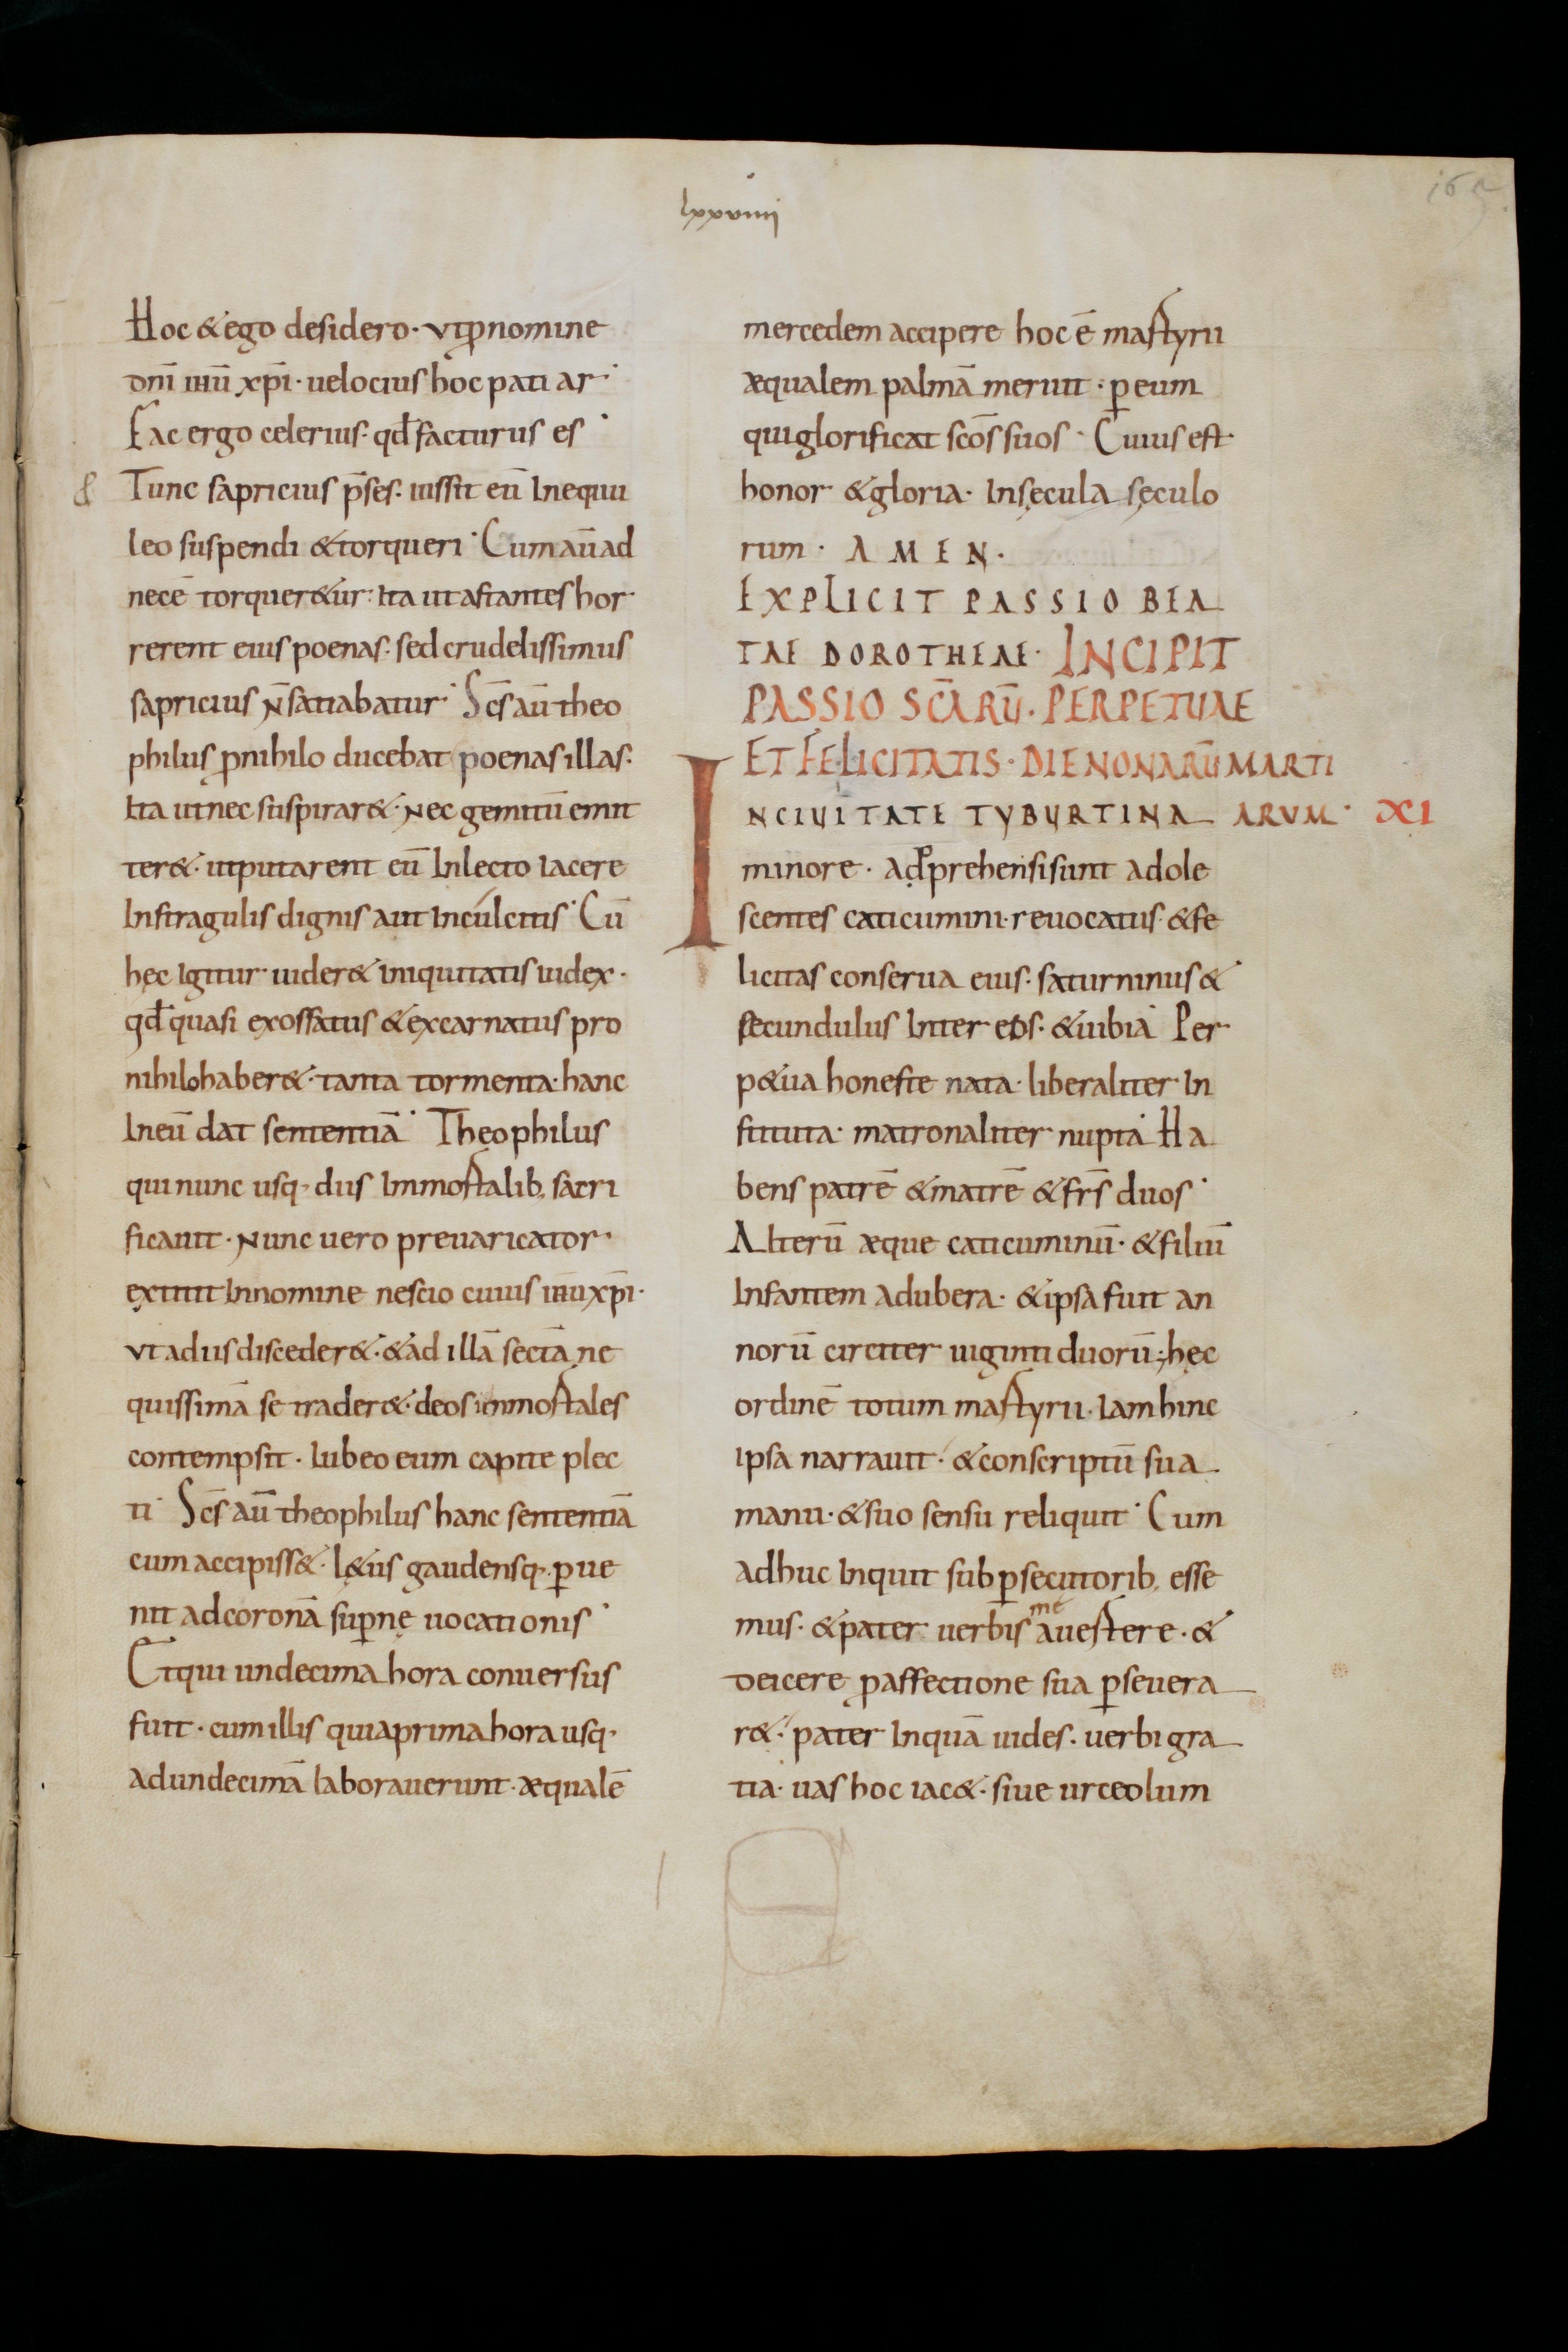 lxxviiii
165
Hoc & ego desidero · ut ꝓ nomine
dñi ihū xp̄i · uelocius hoc pati ar ·
Fac ergo celerius · qđ facturus es ·
& Tunc sapricius p̄ses · iussit eū In equu
leo suspendi & torqueri · Cum aū ad
necē torquer&ur : Ita ut astantes hor
rerent eius poenas : sed crudelissimus
sapricius n̄ satiabatur · Scs̄ aū theo
philus ꝓ nihilo ducebat poenas illas ·
Ita ut nec suspirar& · nec gemitū emit
ter& · ut putarent eū In lecto iacere
In stragulis dignis aut In culcitis · Cū
hęc igitur uider& iniquitatis iudex ·
qđ quasi exossatus & excarnatus pro
nihilo haber& · tanta tormenta · hanc
In eū dat sententiā · Theophilus
qui nunc usq· diis Immortalib; sacri
ficauit · Nunc uero preuaricator
extitit In nomine nescio cuius ihū xp̄i ·
ut a diis disceder& · & ad illā sectā ne
quissimā se trader& · deos immortales
contempsit · Iubeo eum capite plec
ti · Scs̄ aū theophilus hanc sententiā
cum accipiss& · l&us gaudensq· ꝑ ue
nit ad coronā suꝑnę uocationis ·
Et qui undecima hora conuersus
fuit · cum illis qui a prima hora usq·
ad undecimā laborauerunt · æqualē
mercedem accipere hoc ē martyrii
æqualem palmā meruit · ꝑ eum
qui glorificat scōs suos · Cuius est
honor & gloria · In sęcula sęculo
rum · AMEN ·
EXPLICIT PASSIO BEA
TAE DOROTHEAE · INCIPIT
PASSIO SC̄ARŪ · PERPETUAE
ET FELICITATIS · DIE NONARŪ MARTI
ARUM · XI
IN CIUITATE TYBURTINA
minore · adprehensi sunt adole
scentes caticumini · reuocatus · & fe
licitas conserua eius · saturninus &
secundulus Inter eos · & uibia Per
p&ua honeste nata · liberaliter In
stituta · matronaliter nupta · Ha
bens patrē & matrē & frs̄ duos ·
Alterū æque caticuminū · & filiū
Infantem ad ubera · & ipsa fuit an
norū circiter uiginti duorū ; hęc
ordinē totum martyrii · Iam hinc
ipsa narrauit · & conscriptū sua
manu · & suo sensu reliquit · Cum
adhuc Inquit sub ꝑsecutorib; esse
mus · & pater uerbis me auertere · &
deicere ꝓ affectione sua ꝑseuera
r& · pater Inquā uides · uerbi gra
tia · uas hoc iac& · siue urceolum